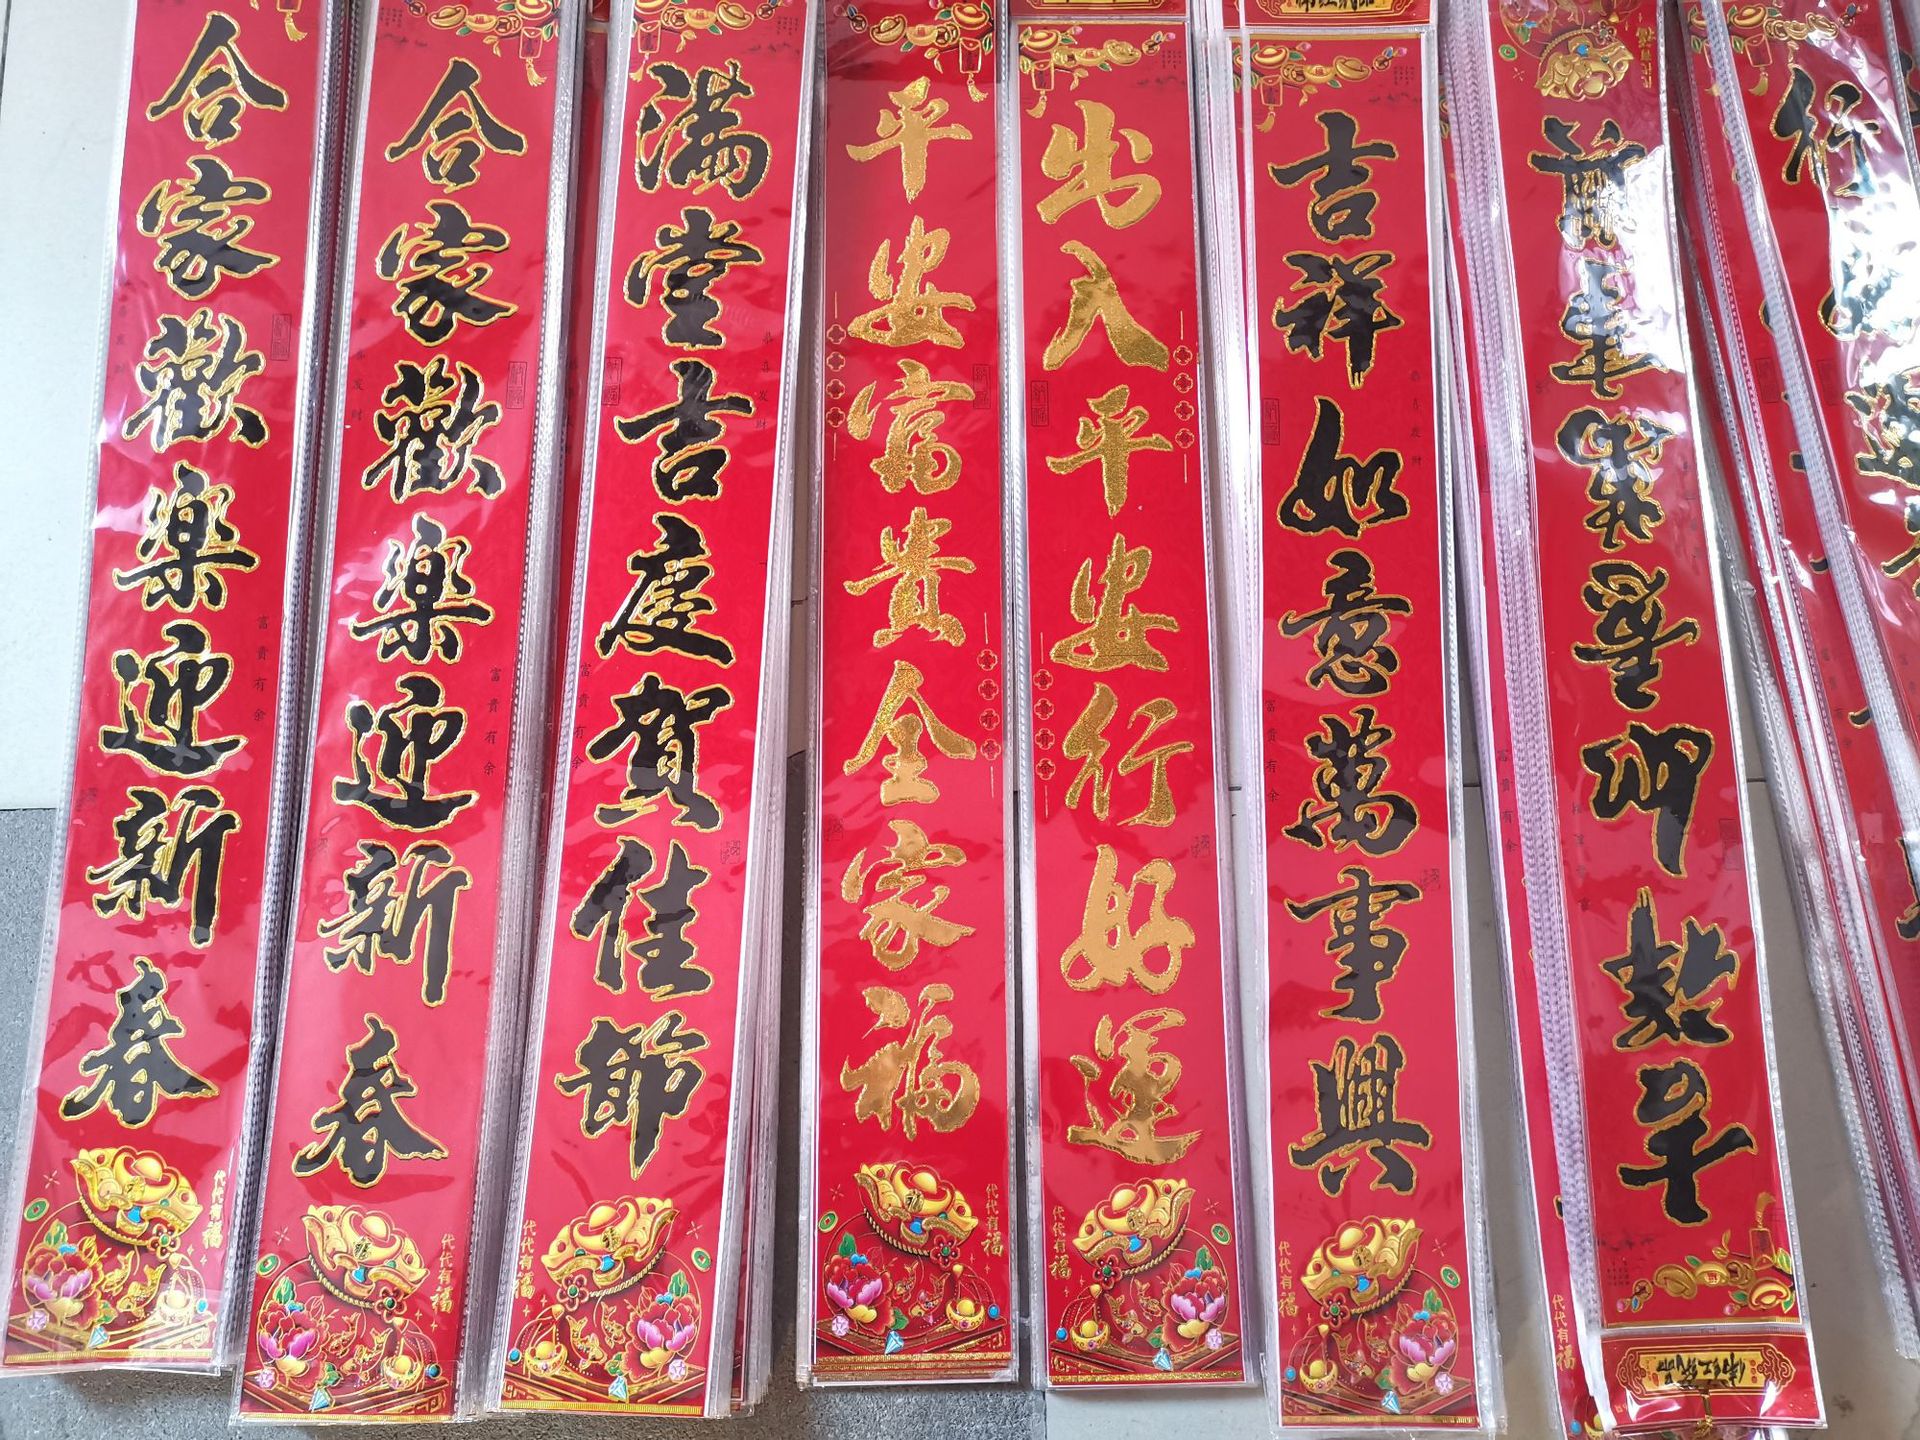 合家歡楽迎新春
富貴有余
代代有福
合家歡楽迎新春
恭喜发财
富貴有余
代代有福
满堂吉慶賀佳節
恭喜发财
富貴有余
代代有福
平安富貴全家福
代代有福
出入平安行好運
代代有福
吉祥如意萬事興
恭喜发财
富貴有余
代代有福
富貴有余
代代有福
行
運